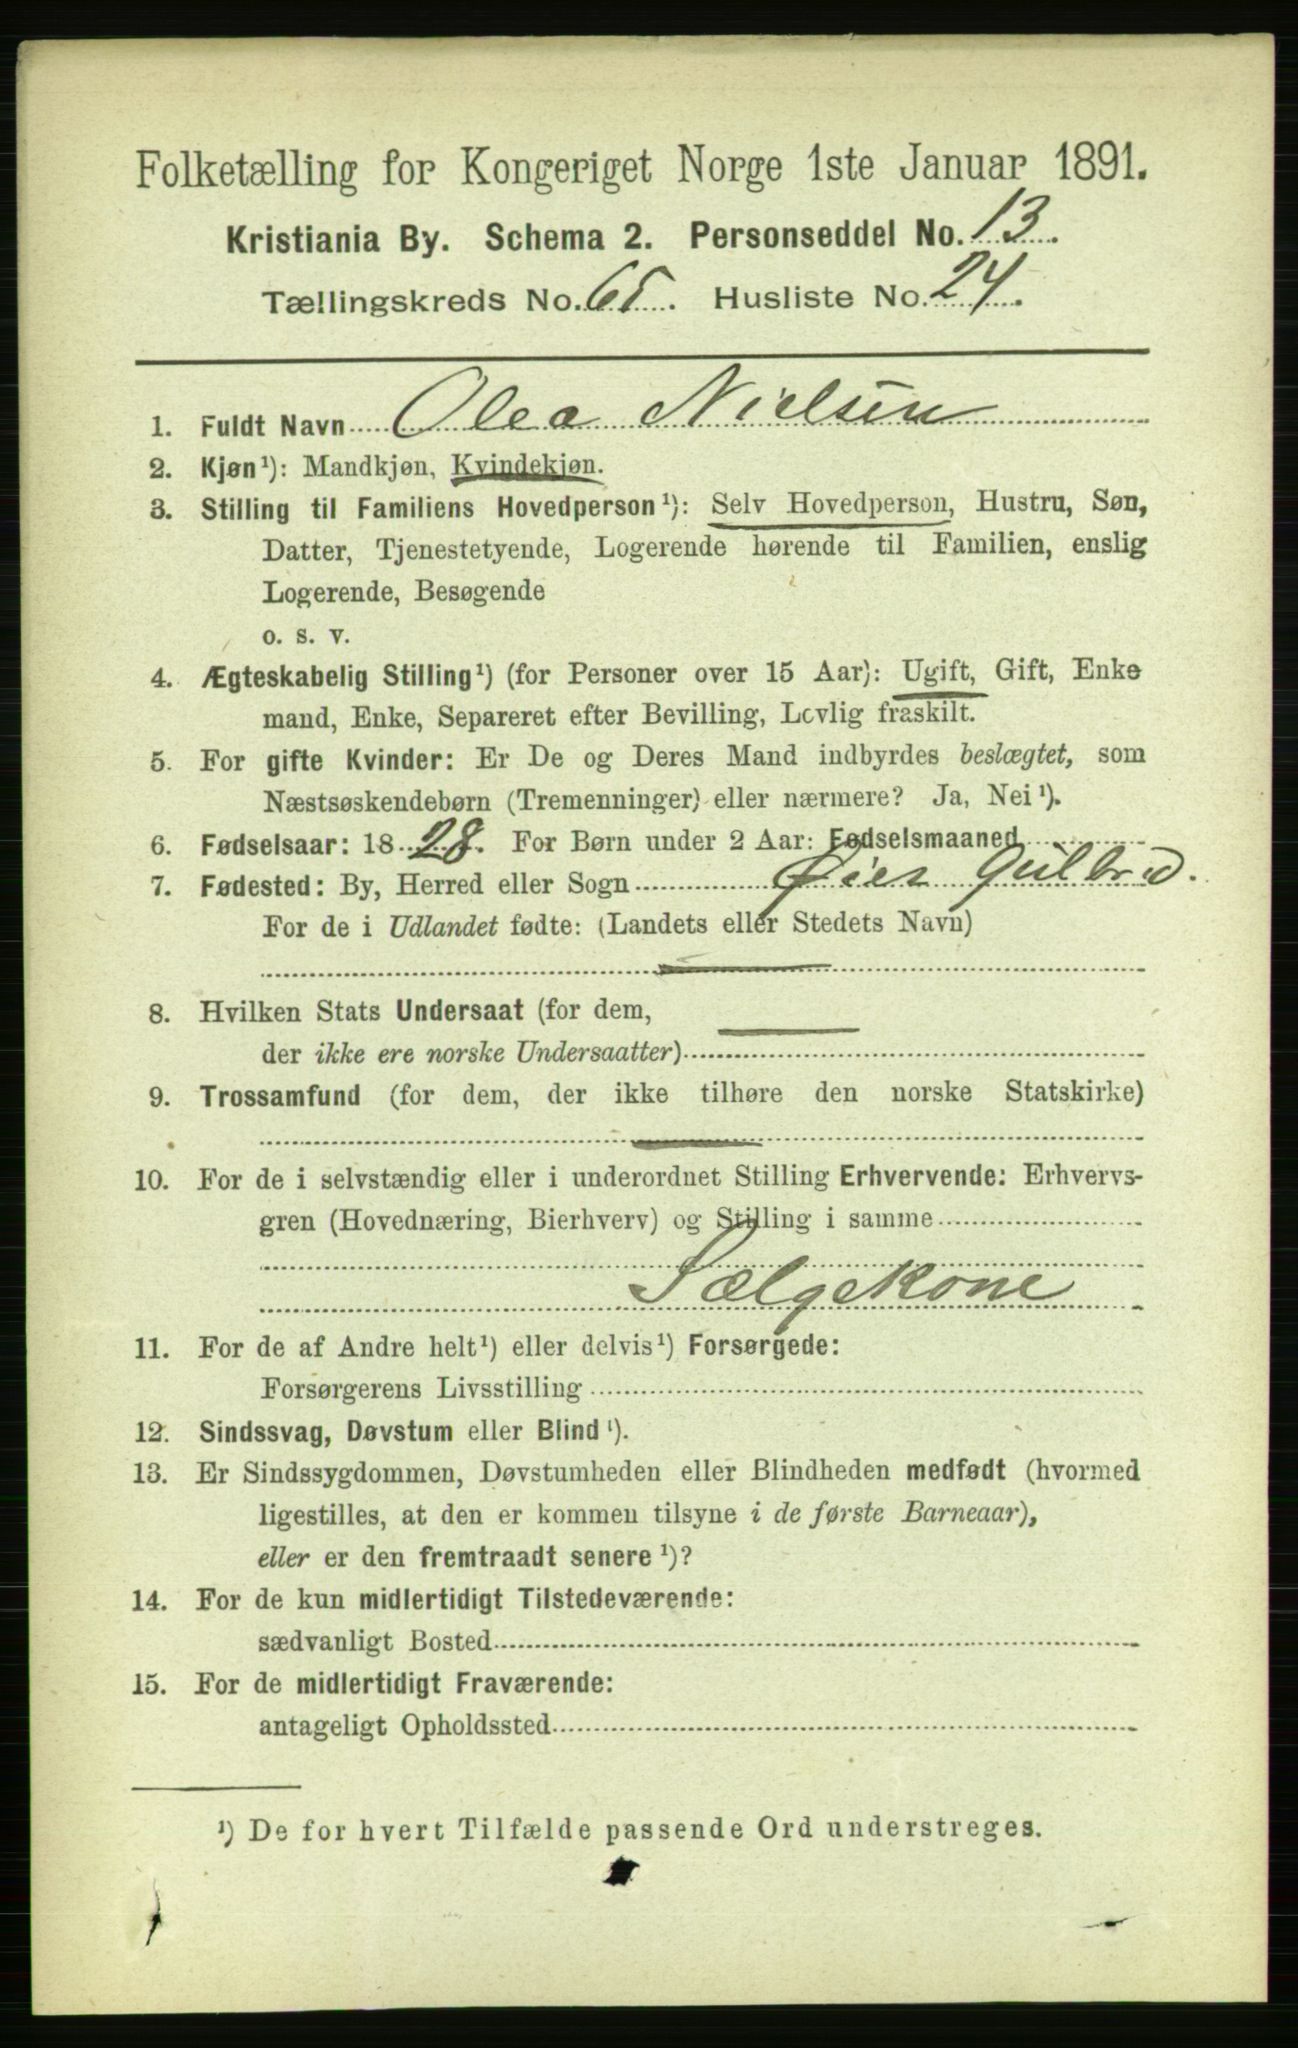 Folketælling for Kongeriget Norge 1ste Januar 1891.
Kristiania By. Schema 2. Personseddel No. 13.
Tællingskreds No. 65. Husliste No. 24.
1. Fuldt Navn Olea Nielsen
2. Kjøn¹): Mandkjøn, Kvindekjøn.
3. Stilling til Familiens Hovedperson¹): Selv Hovedperson, Hustru, Søn,
Datter, Tjenestetyende, Logerende hørende til Familien, enslig
Logerende, Besøgende
o. s. v.
4. Ægteskabelig Stilling¹) (for Personer over 15 Aar): Ugift, Gift, Enke
mand, Enke, Separeret efter Bevilling, Lovlig fraskilt.
5. For gifte Kvinder: Er De og Deres Mand indbyrdes beslægtet, som
Næstsøskendebørn (Tremenninger) eller nærmere? Ja, Nei¹).
6. Fødselsaar: 1828. For Børn under 2 Aar: Fødselsmaaned
7. Fødested: By, Herred eller Sogn Øier Gulbrd.
For de i Udlandet fødte: (Landets eller Stedets Navn)
8. Hvilken Stats Undersaat (for dem,
der ikke ere norske Undersaatter)
9. Trossamfund (for dem, der ikke tilhøre den norske Statskirke)
10. For de i selvstændig eller i underordnet Stilling Erhvervende: Erhvervs-
gren (Hovednæring, Bierhverv) og Stilling i samme
Sælgekone
11. For de af Andre helt¹) eller delvis¹) Forsørgede:
Forsørgerens Livsstilling
12. Sindssvag, Døvstum eller Blind¹).
13. Er Sindssygdommen, Døvstumheden eller Blindheden medfødt (hvormed
ligestilles, at den er kommen tilsyne i de første Barneaar),
eller er den fremtraadt senere¹)?
14. For de kun midlertidigt Tilstedeværende:
sædvanligt Bosted
15. For de midlertidigt Fraværende:
antageligt Opholdssted
¹) De for hvert Tilfælde passende Ord understreges.